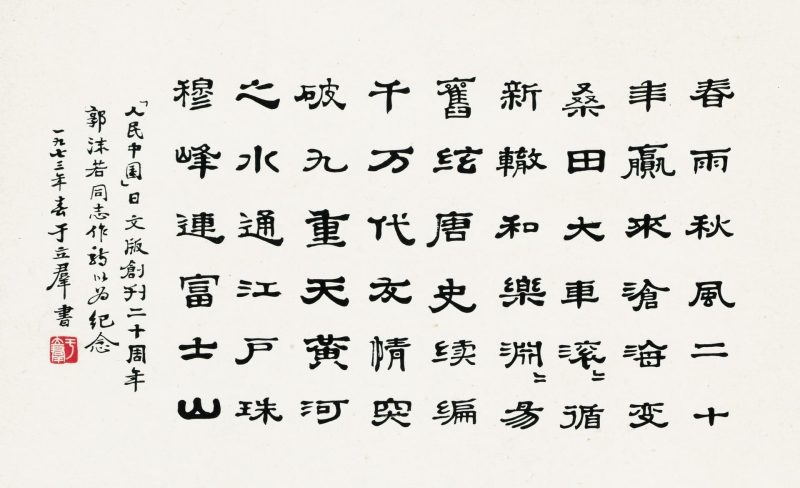 春雨秋風二十
年贏來滄海变
桑田大車滚〻循
新轍和樂淵〻易
舊絃唐史续编
千万代友情突
破九重天黄河
之水通江戶珠
穆峰連富士山
「人民中国」日文版創刊二十周年
郭沫若同志作詩以为紀念
一九七三年春于立羣書
于立羣